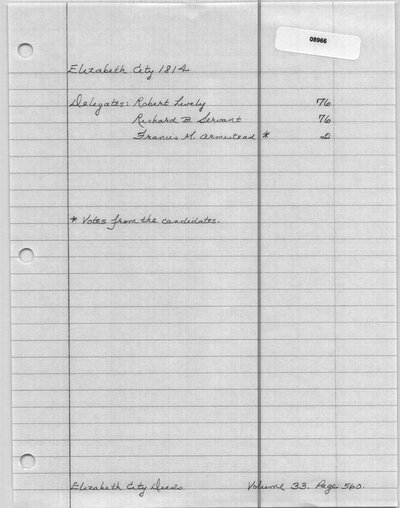 08966
Elizabeth City 1814
Delegates: Robert Lively 76
Richard B. Servant 76
Francis M. Armistead * 2
* Votes from the candidates.
Elizabeth City Deeds Volume 33. Page 560.